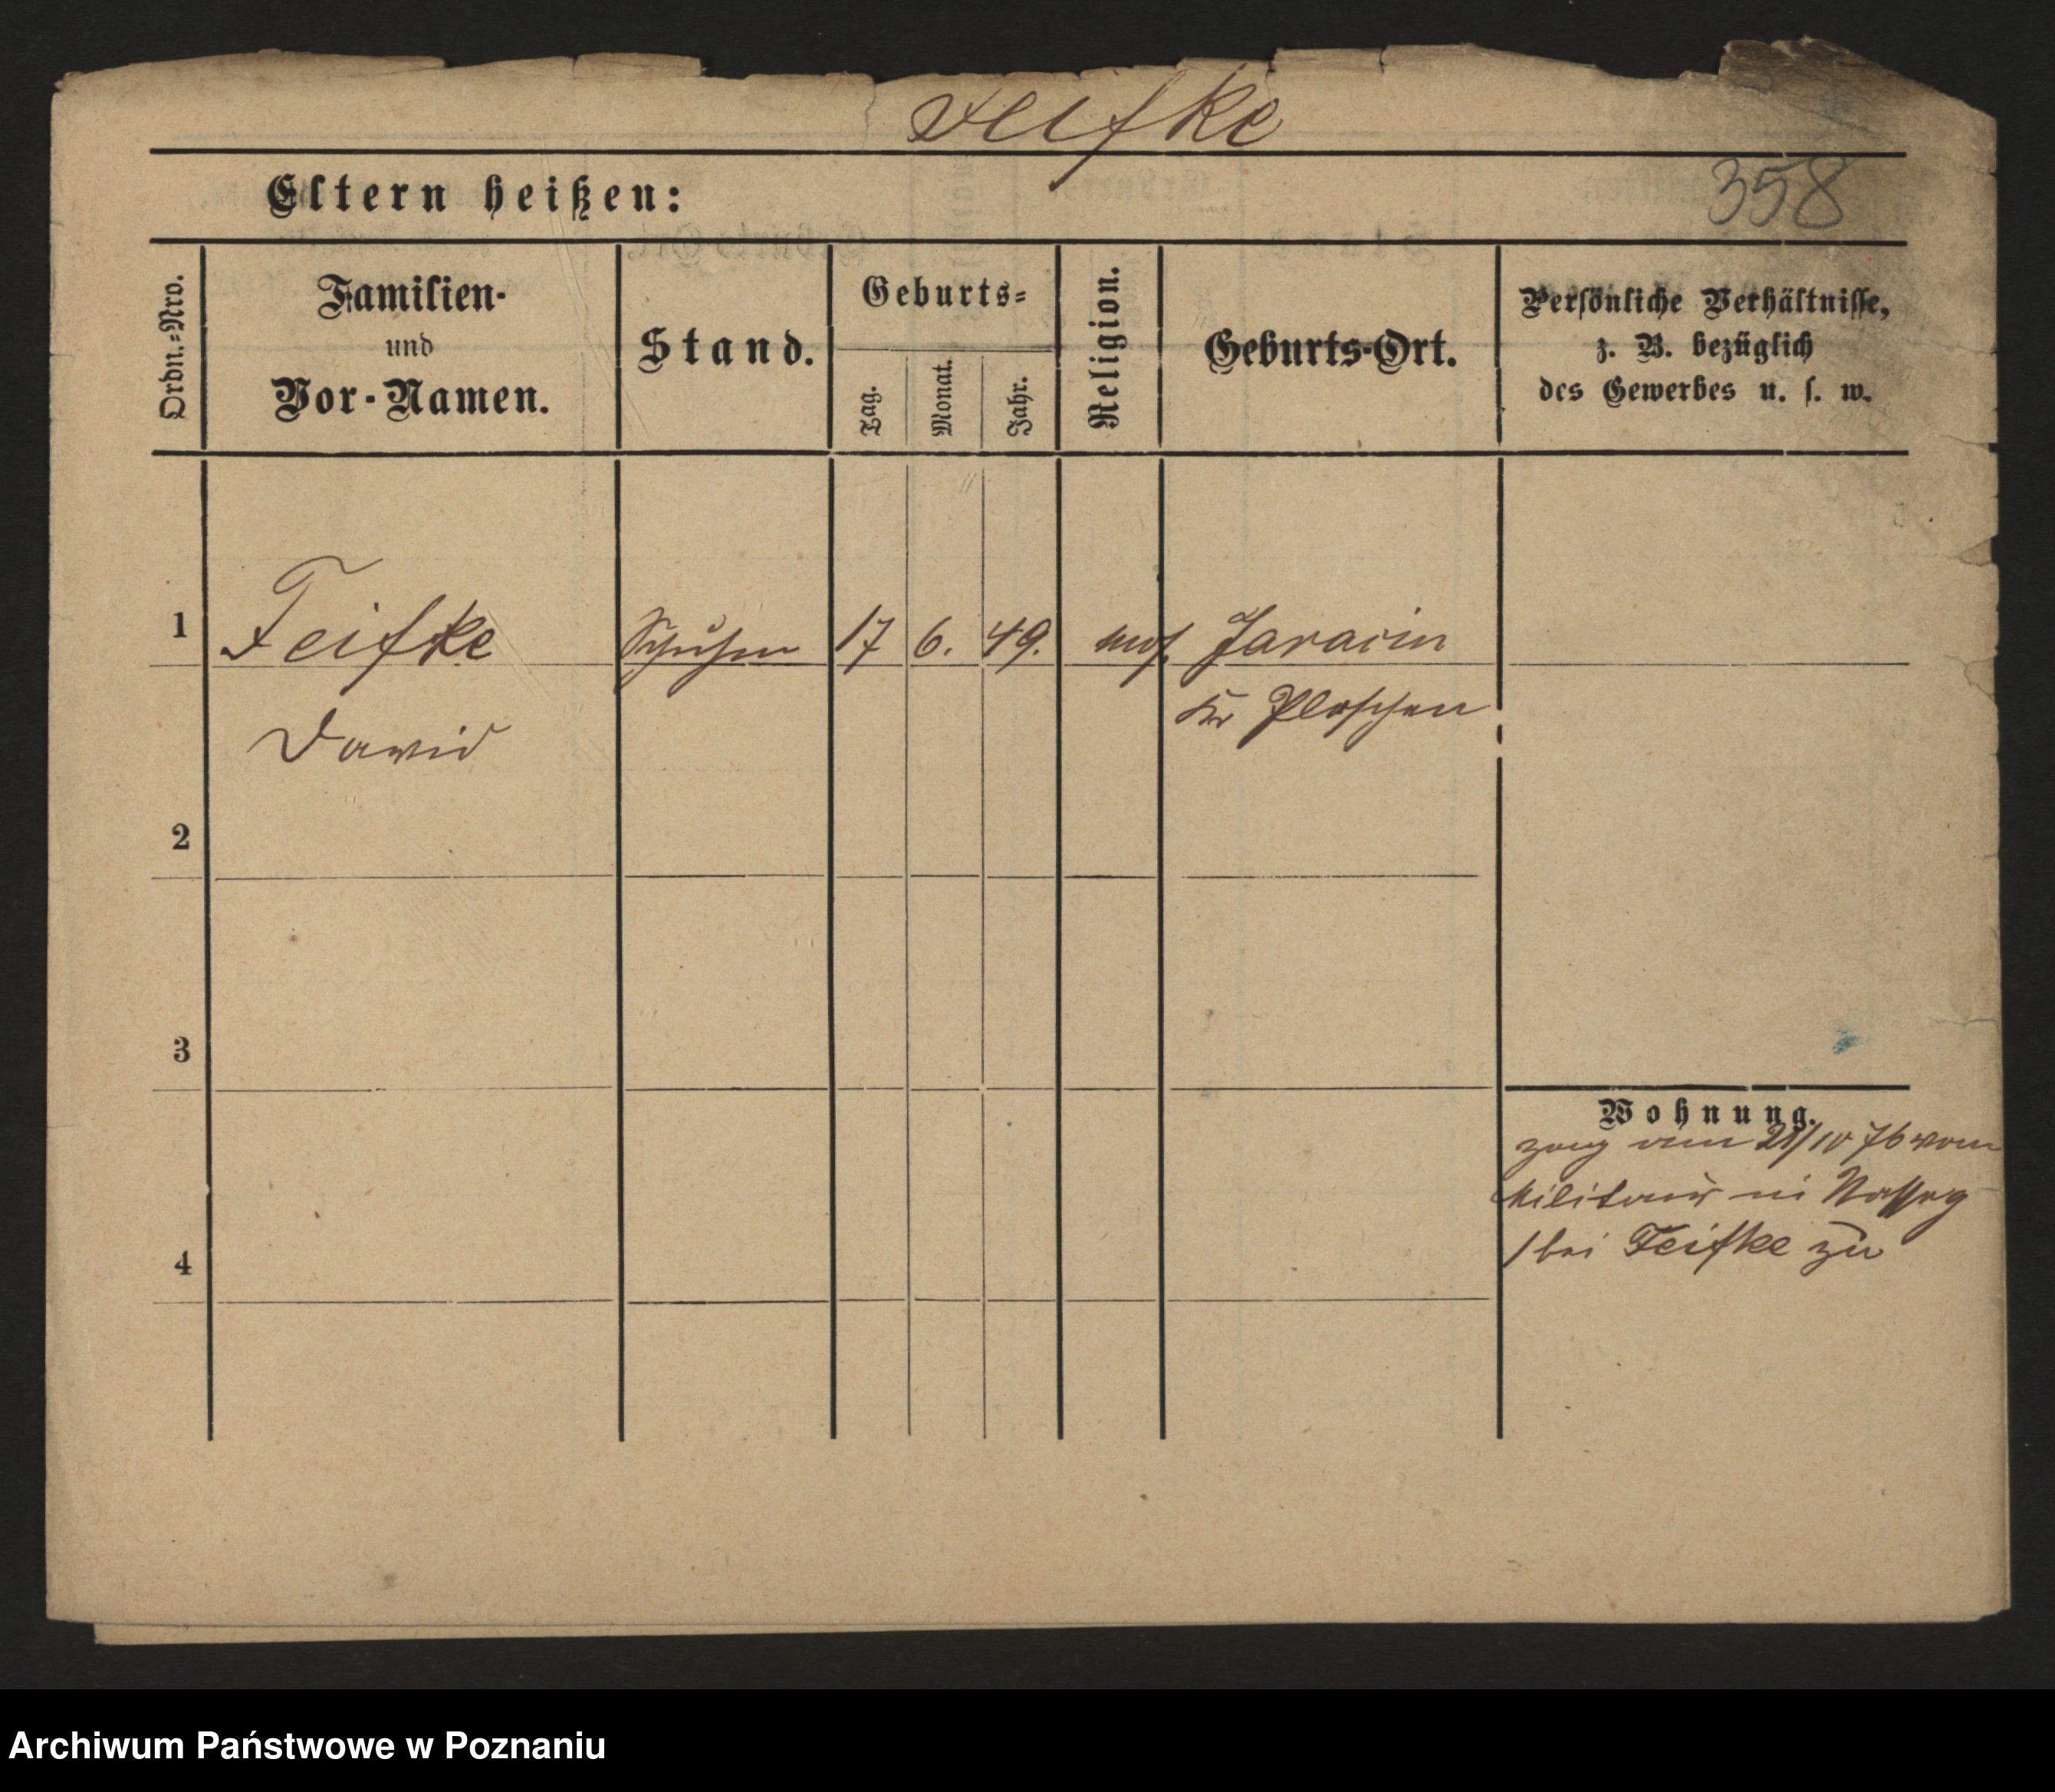 Feifke
358
Eltern heißen:
Ordn.-Nro.
Familien-
und
Vor-Namen.
Stand.
Geburts-
Tag.
Monat.
Jahr.
Religion.
Geburts-Ort.
Persönliche Verhältnisse,
z. B. bezüglich
des Gewerbes u. s. w.
1 Feifke 17 6. 49. mos. Jaracin
David
Kr Pleschen
2
3
4
Wohnung.
zog am 21/10 76 vom
Militair in
bei Feifke zu
Archiwum Państwowe w Poznaniu